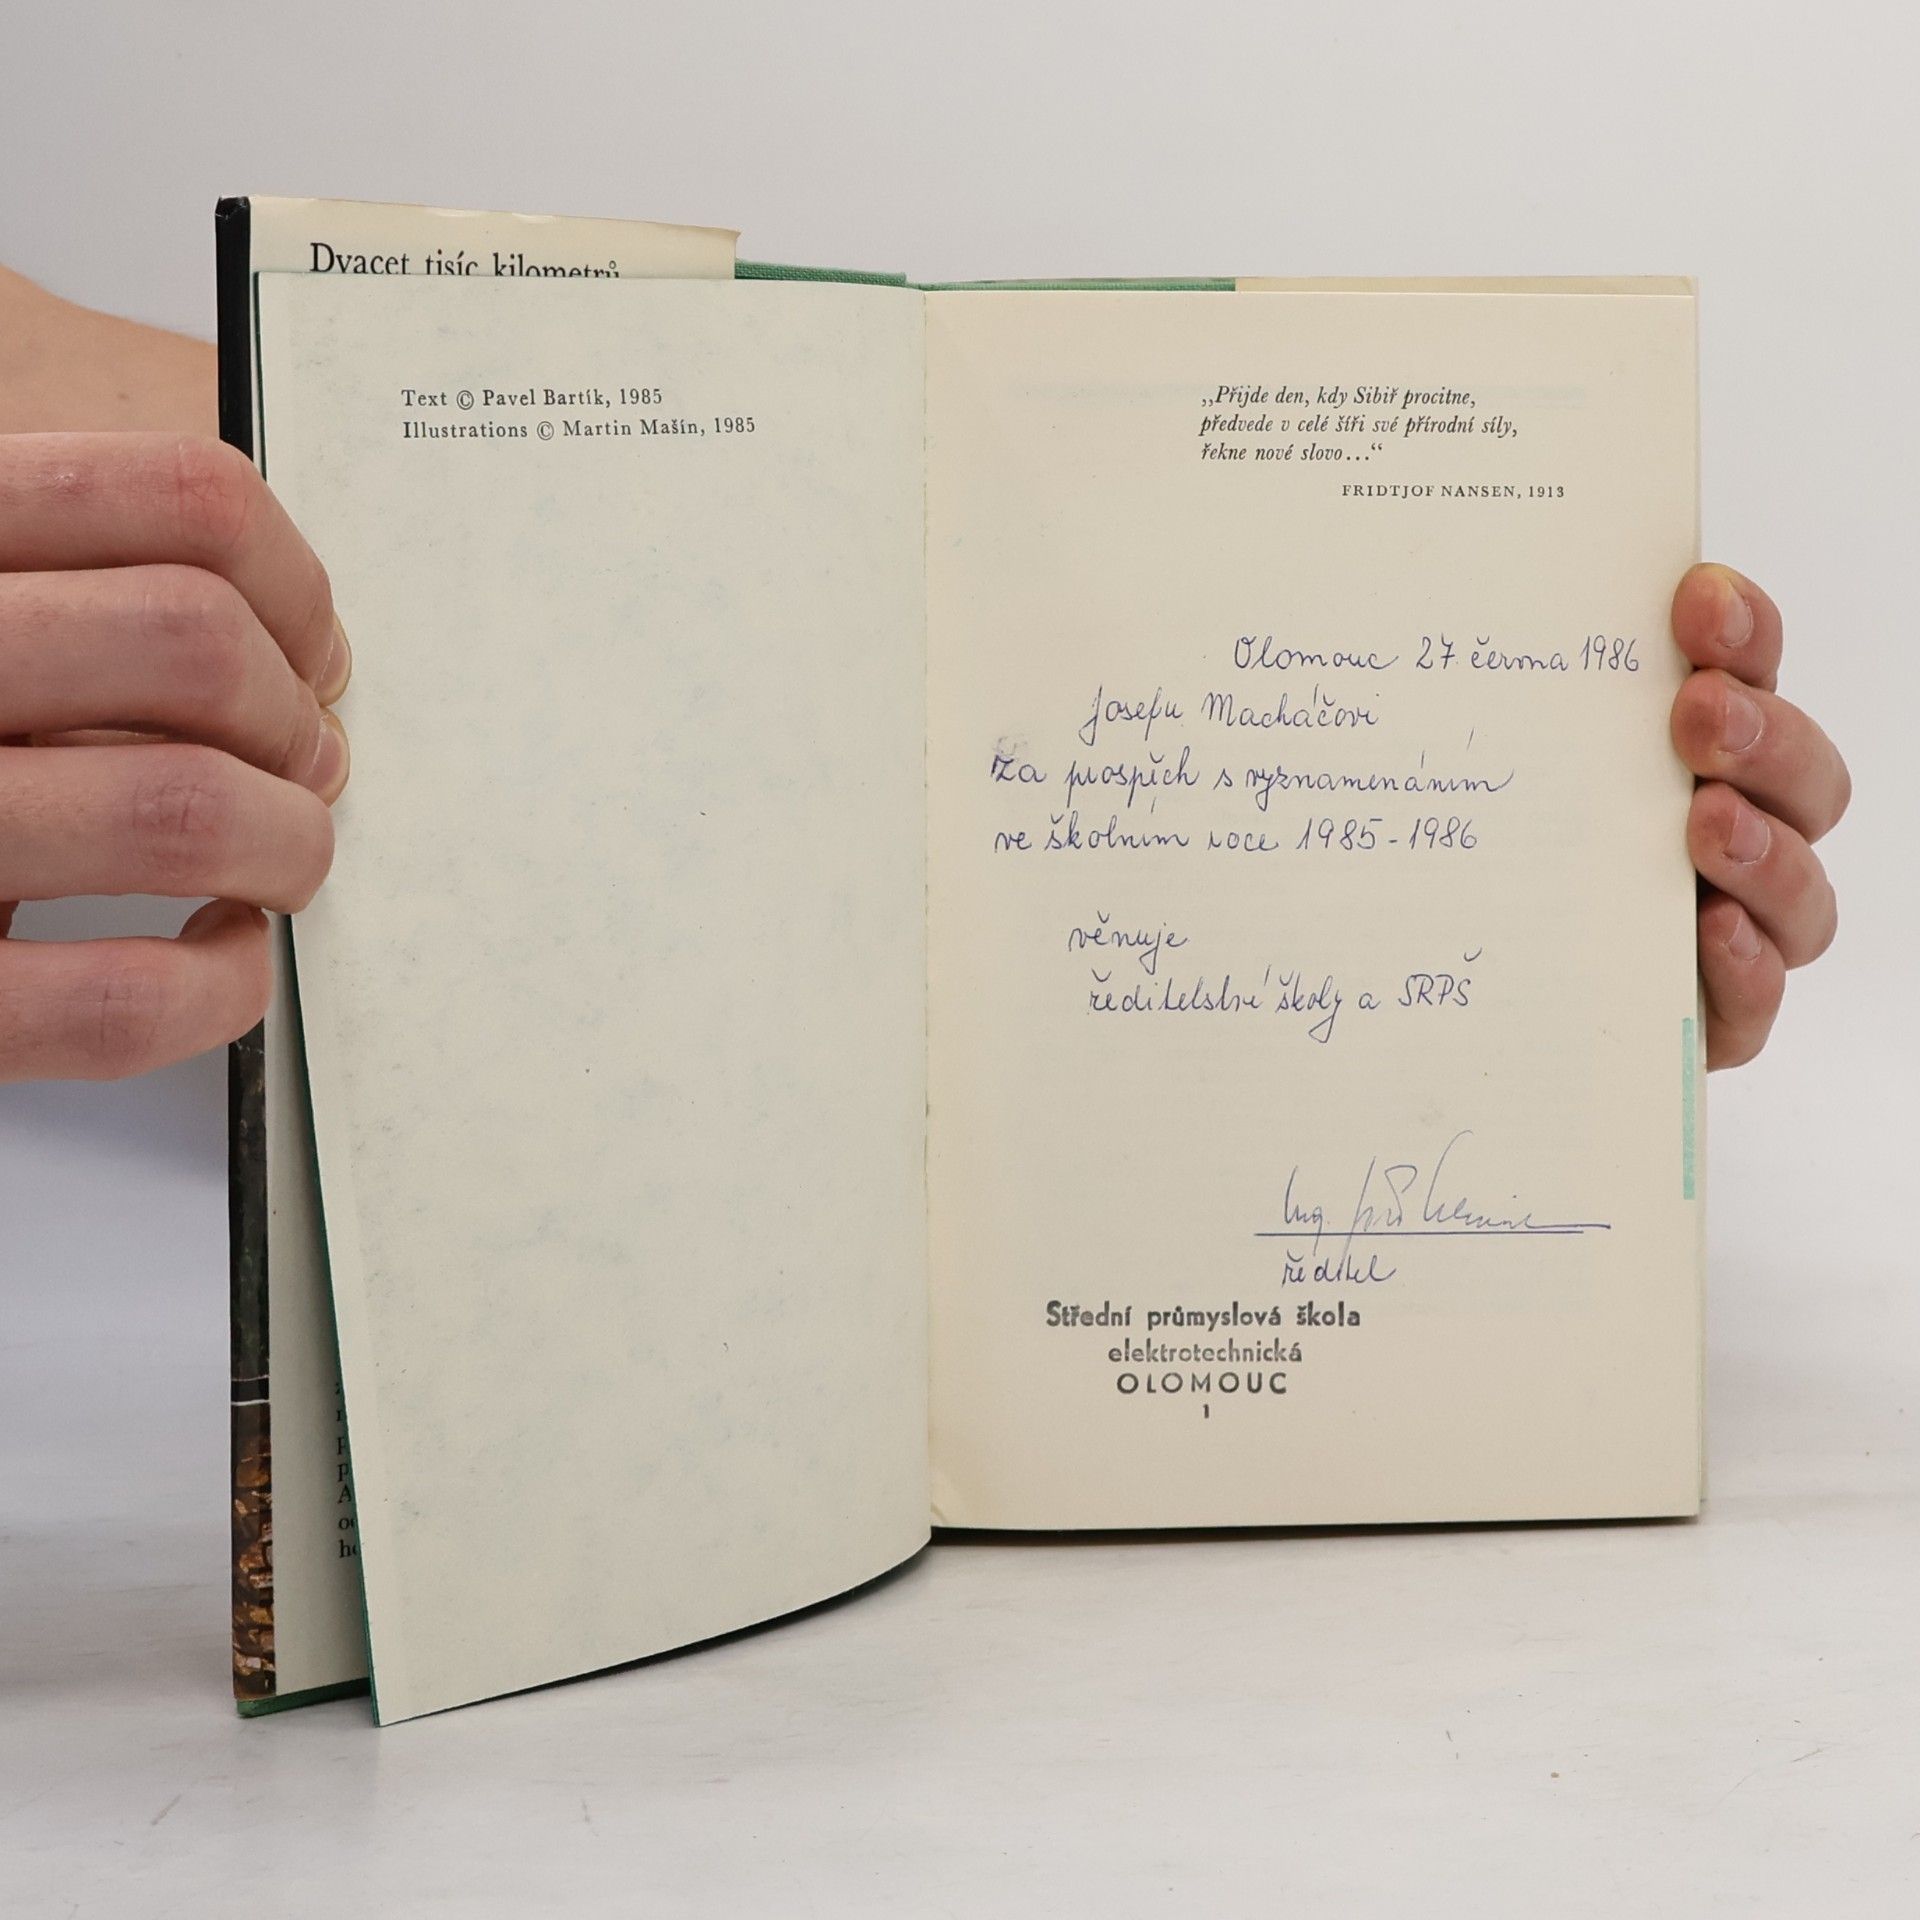 Dvacet tisíc kilometrů
Text © Pavel Bartík, 1985
Illustrations © Martin Mašín, 1985
„Přijde den, kdy Sibiř procitne,
předvede v celé šíři své přírodní síly,
řekne nové slovo...“
FRIDTJOF NANSEN, 1913
Olomouc 27. června 1986
Josefu Macháčovi
Za prospěch s vyznamenáním
ve školním roce 1985-1986
věnuje
ředitelství školy a SRPŠ
Ing.
ředitel
Střední průmyslová škola
elektrotechnická
OLOMOUC
1